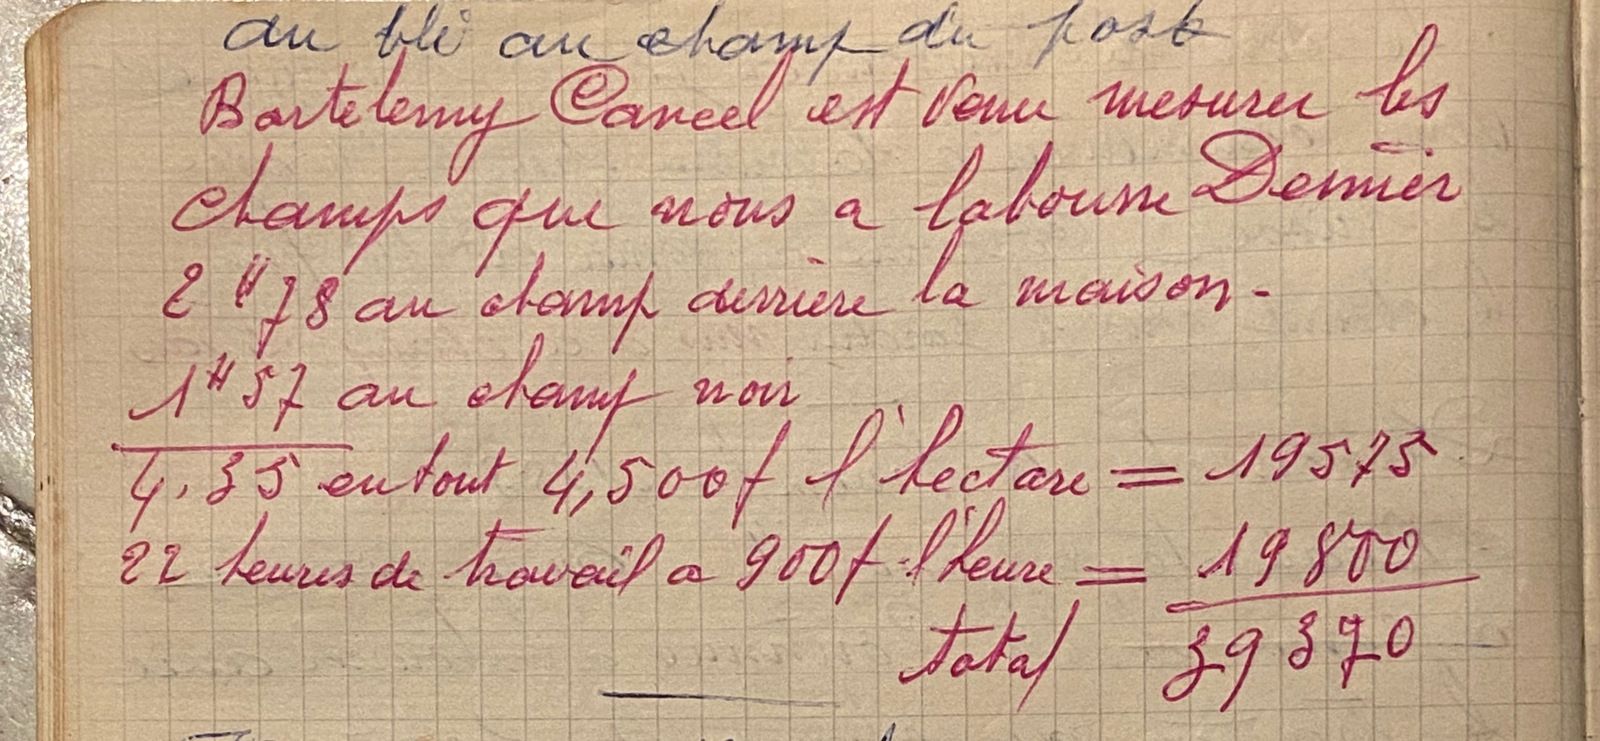 du blé au champ du post
Bartelemy Cancel est venu mesurer les
champs que nous a labourre Dernier
2 H 78 au champ derrière la maison -
1 H 57 au champ noir
4,35 en tout 4,500f l'hectare = 19575
22 heures de travail a 900f l'heure = 19800
total 39370